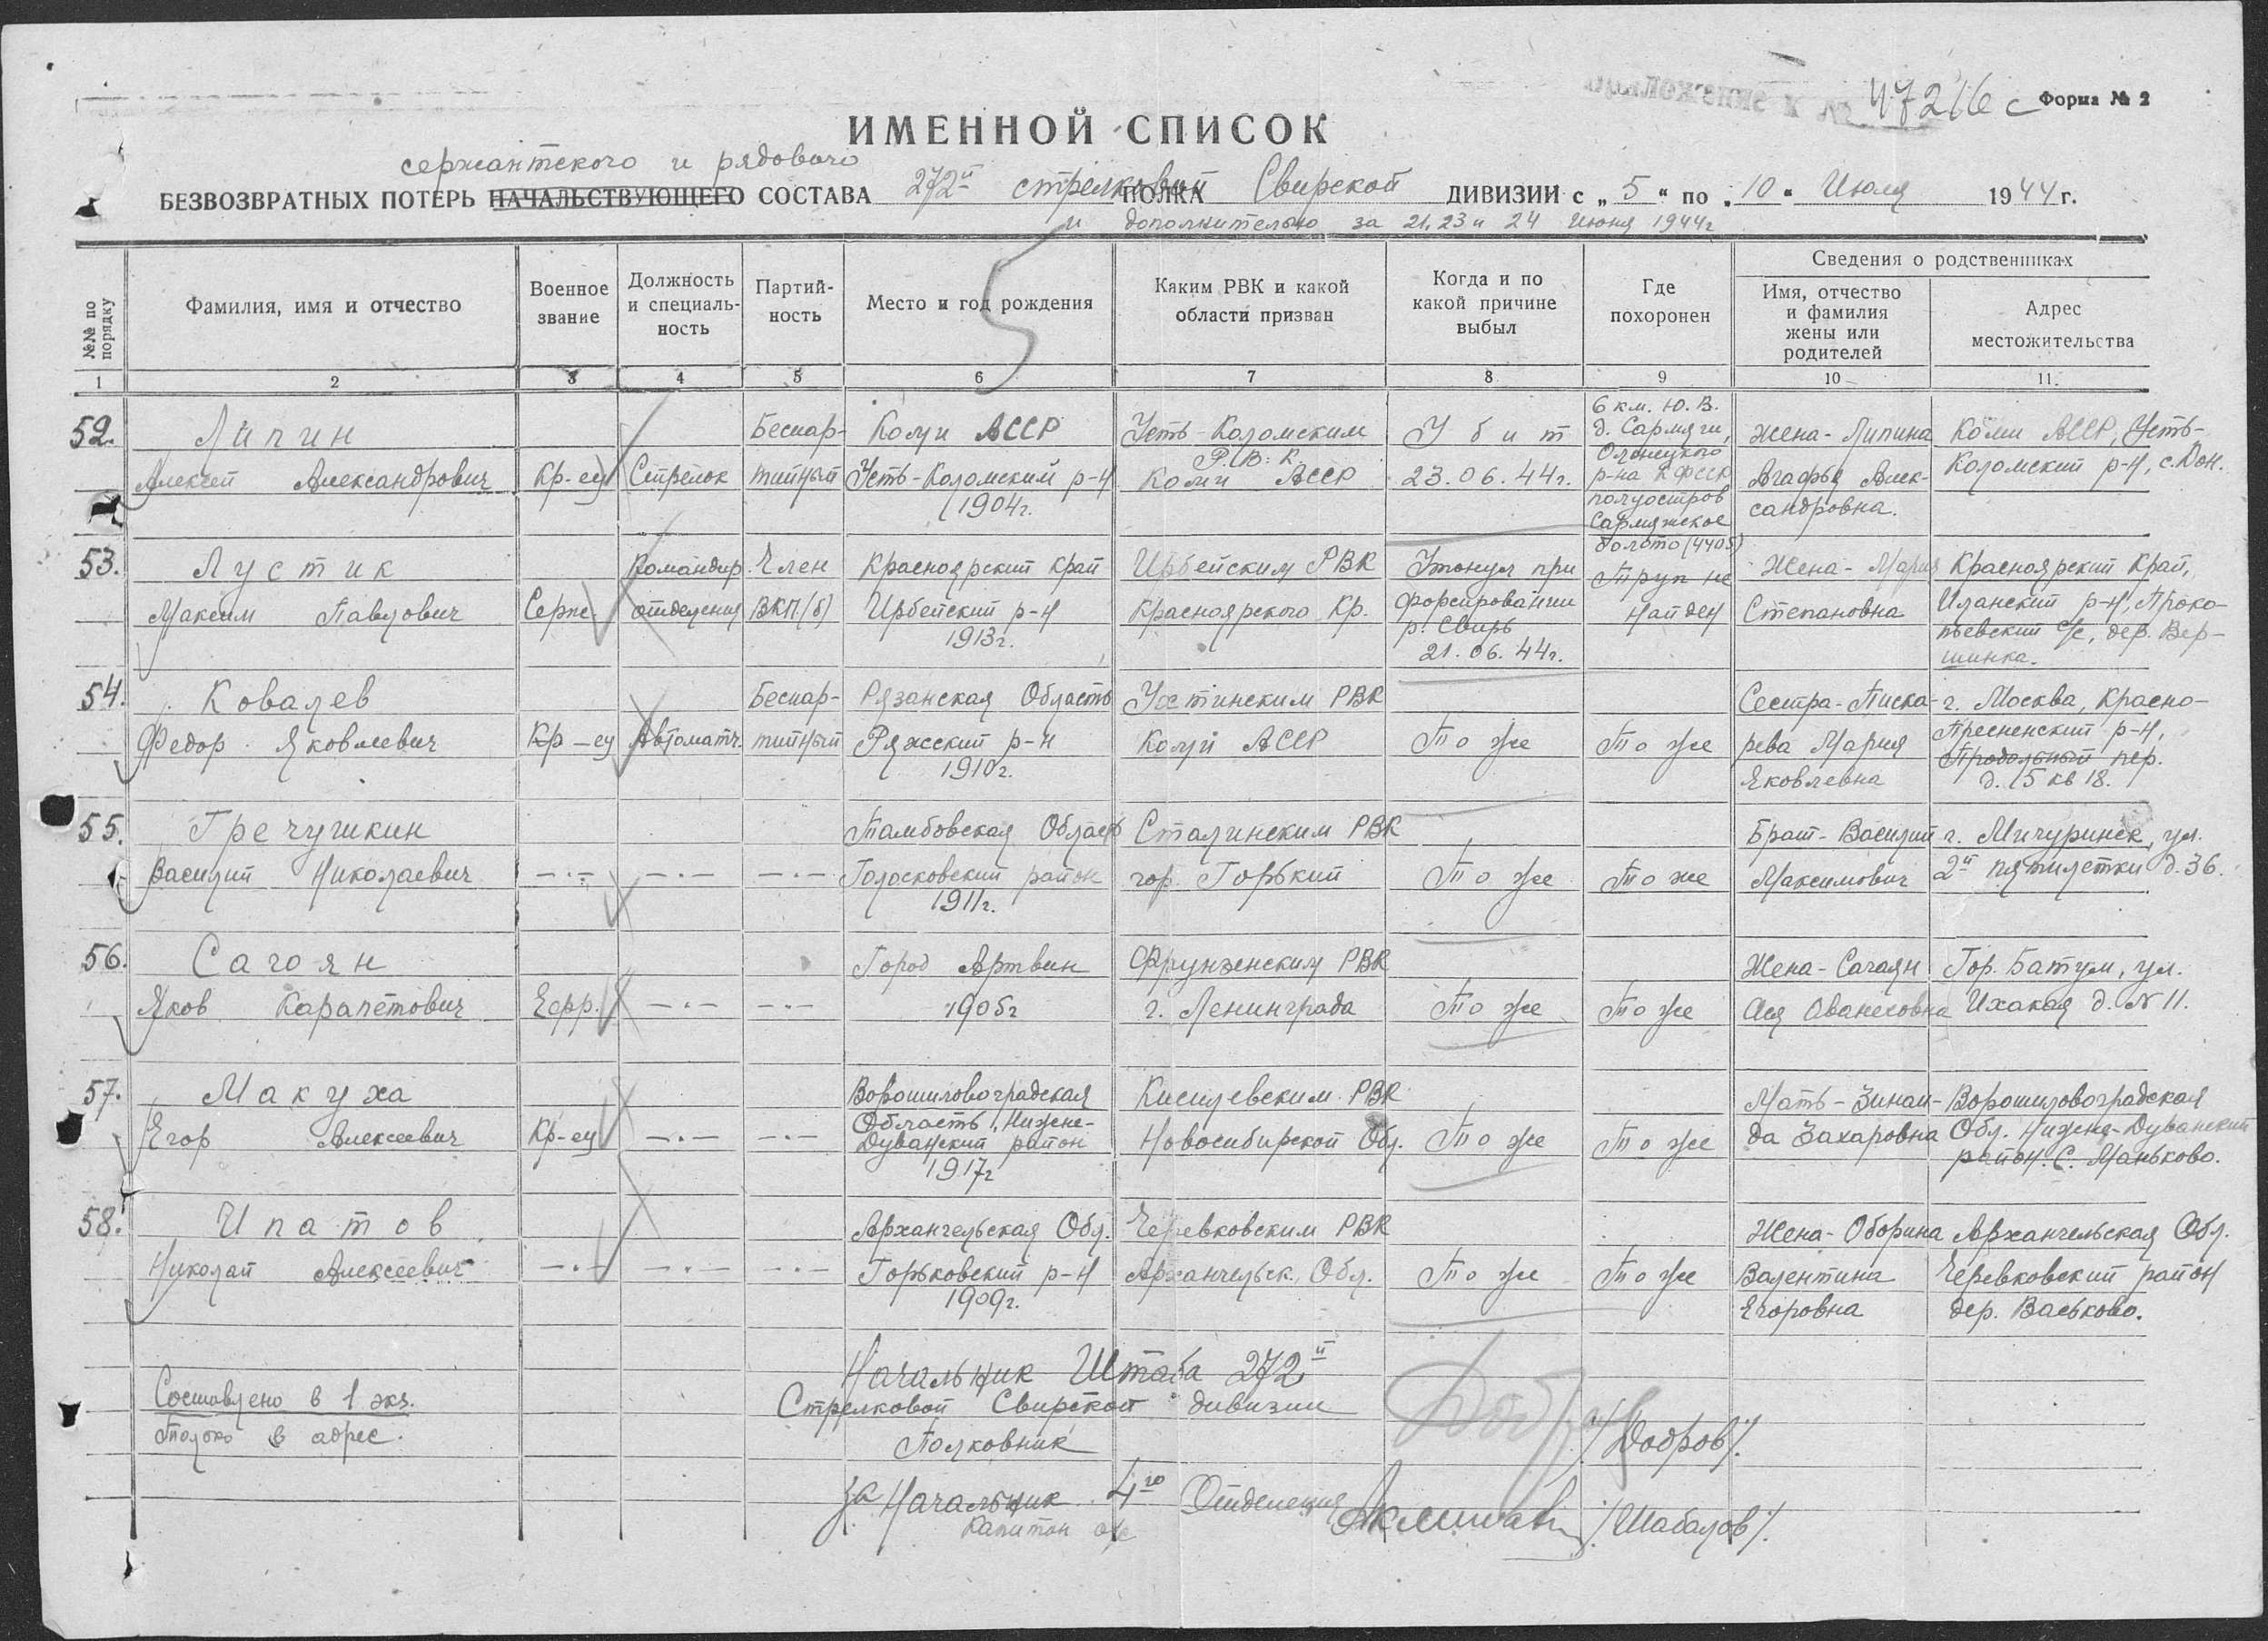 приложение к № 47216с Форма № 2
ИМЕННОЙ СПИСОК
сержантского и рядового
БЕЗВОЗВРАТНЫХ ПОТЕРЬ НАЧАЛЬСТВУЮЩЕГО СОСТАВА 272й стрелковой ПОЛКА Свирской ДИВИЗИИ с „ 5 “ по „ 10 “ Июля 1944 г.
и дополнительно за 21, 23 и 24 Июня 1944г
№№ по порядку
Фамилия, имя и отчество
Военное звание
Должность и специаль-ность
Партий-ность
Место и год рождения
Каким РВК и какой области призван
Когда и по какой причине выбыл
Где похоронен
Сведения о родственниках
Имя, отчество и фамилия жены или родителей
Адрес местожительства
1 2 3 4 5 6 7 8 9 10 11.
52.
Липин
Алексей Александрович
Кр-ец
Стрелок
Беспар-
тийный
Коми АССР
Усть-Коломский р-н
1904г.
Усть-Коломским
Р.В.К.
Коми АССР
Убит
23.06.44г.
6 км. Ю.В.
д. Сармяги,
Олонецкого
р-на КФССР
полуостров
Сармяжское
болото (4405)
Жена-Липина
Агафья Алек-
сандровна.
Коми АССР, Усть-
Коломский р-н, с. Дон.
53.
Лустик
Максим Павлович
Серж.
Командир
отделения
Член
ВКП(б)
Красноярский край
Ирбейский р-н
1913г.
Ирбейским РВК
Красноярского Кр.
Утонул при
форсировании
р. Свирь
21.06.44г.
Труп не
найден
Жена-Мария
Степановна
Красноярский Край,
Иланский р-н, Проко-
пьевский с/с, дер. Вер-
шинка.
54.
Ковалев
Федор Яковлевич
Кр-ец
Автоматч.
Беспар-
тийный
Рязанская Область
Ряжский р-н
1910г.
Ухтинским РВК
Коми АССР
То же
То же
Сестра-Писка-
рева Мария
Яковлевна
г. Москва, Красно-
Пресненский р-н,
Продольный пер.
д. 15 кв 18.
55.
Гречушкин
Василий Николаевич
—·—
—·—
—·—
Тамбовская Область
Голосковский район
1911г.
Сталинским РВК
гор. Горький
То же
То же
Брат-Василий
Максимович
г. Мичуринск, ул.
2й пятилетки д.36.
56.
Сагоян
Яков Карапетович
Ефр.
—·—
—·—
Город Артвин
1905г
Фрунзенским РВК
г. Ленинграда
То же
То же
Жена-Сагаян
Ася Ованесовна
Гор. Батум, ул.
Цхакая д. № 11.
57.
Макуха
Егор Алексеевич
Кр-ец
—·—
—·—
Ворошиловоградская
Область, Нижне-
Дуванский район
1917г
Кисилевским РВК
Новосибирской Обл.
То же
То же
Мать-Зинаи-
да Захаровна
Ворошиловоградская
Обл. Нижне-Дуванский
район. С. Маньково.
58.
Ипатов
Николай Алексеевич
—·—
—·—
—·—
Архангельская Обл.
Горьковский р-н
1909г.
Черевковским РВК
Архангельск. Обл.
То же
То же
Жена-Оборина
Валентина
Егоровна
Архангельская Обл.
Черевковский район
дер. Васьково.
Составлено в 1 экз.
Только в адрес.
Начальник Штаба 272й
Стрелковой Свирской дивизии
Полковник /Добров/.
За Начальник 4го Отделения
Капитан а/с /Шабалов/.